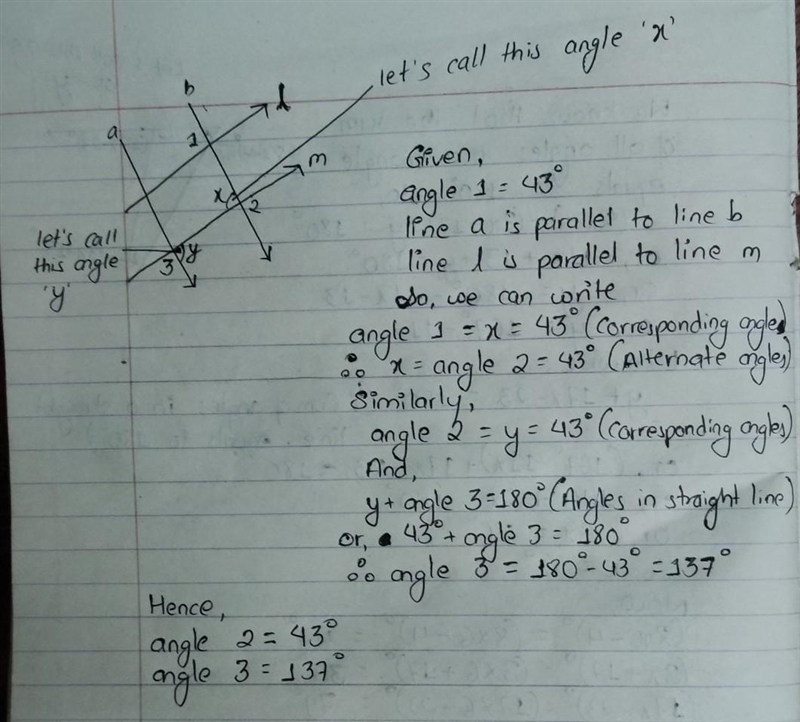 let's call this angle 'x'
b
l
a
1
m
x
2
let's call
this angle
'y'
y
3
Given,
angle 1 = 43°
line a is parallel to line b
line l is parallel to line m
So, we can write
angle 1 = x = 43° (Corresponding angles)
∴ x = angle 2 = 43° (Alternate angles)
Similarly,
angle 2 = y = 43° (Corresponding angles)
And,
y + angle 3 = 180° (Angles in straight line)
or, 43° + angle 3 = 180°
∴ angle 3 = 180° - 43° = 137°
Hence,
angle 2 = 43°
angle 3 = 137°